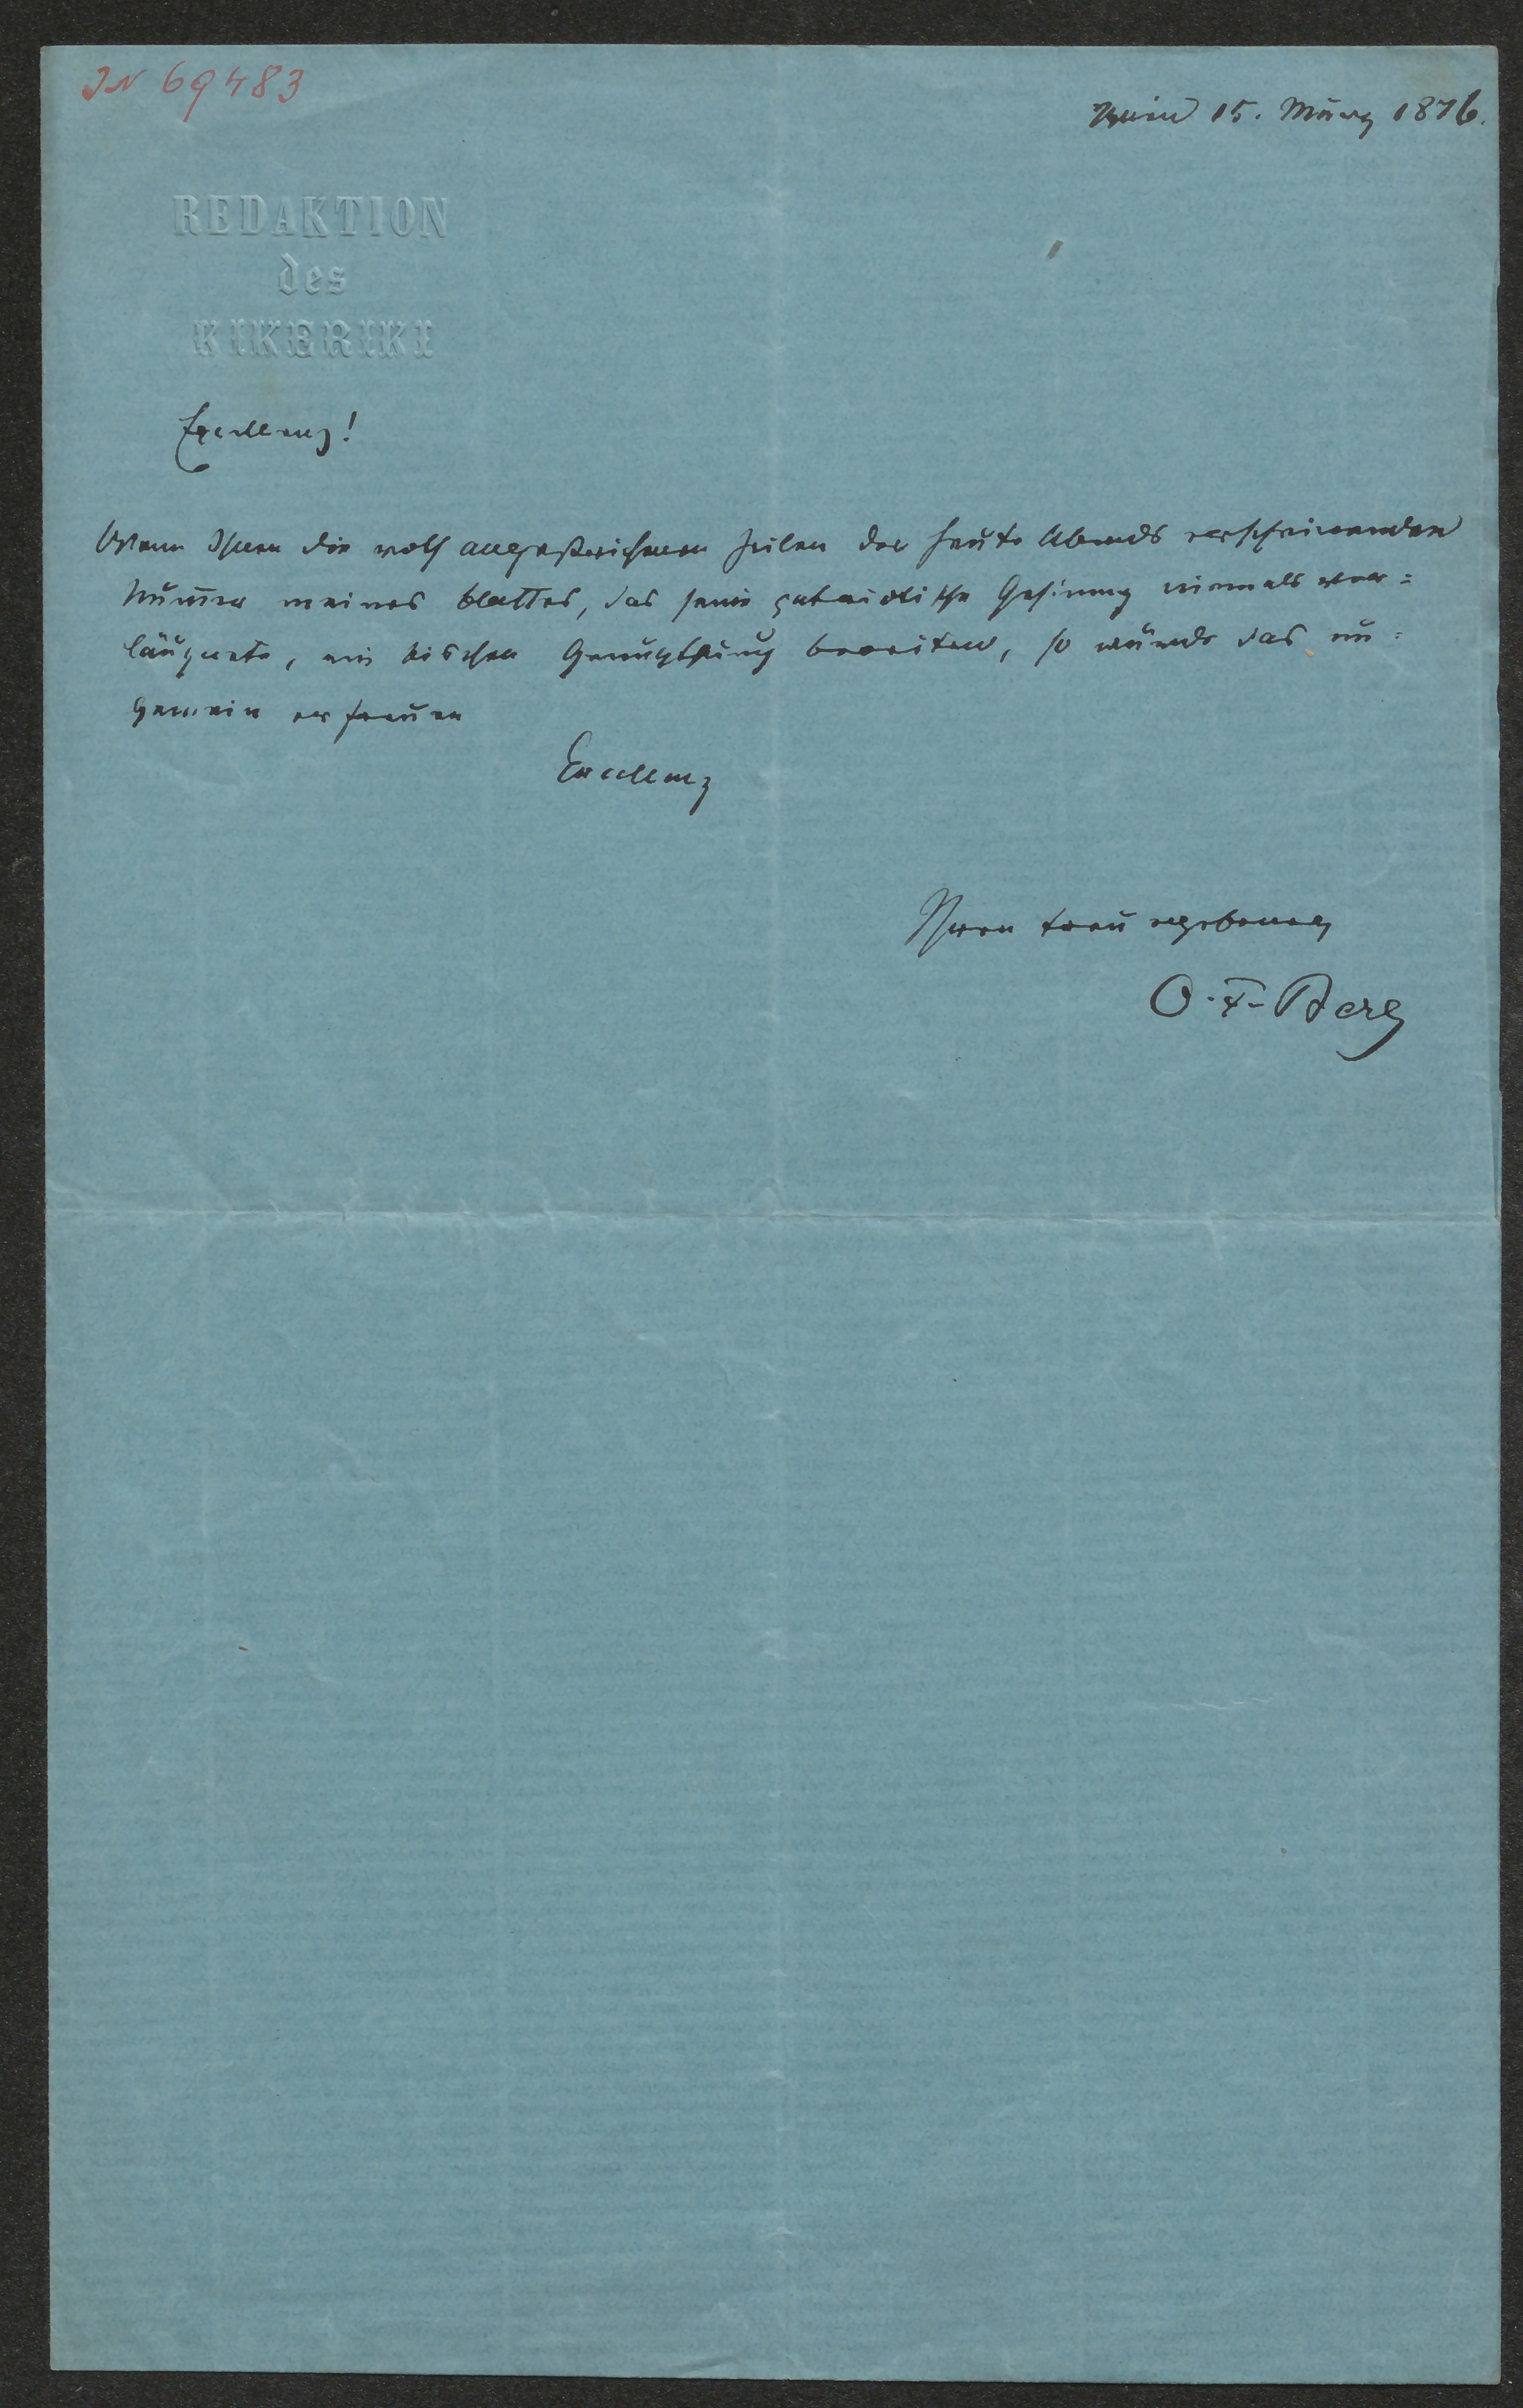 IN 69483
Wien 15. März 1876.
REDAKTION
des
KIKERIKI
Excellenz!
Wenn Ihnen die roth angestrichenen Zeilen der heute Abends erscheinenden
Nummer meines Blattes, das seine Gesinung niemals ver=
läugnete, ein bischen Genugthuung bereiten, so würde das un=
gemein erfreuen
Excellenz
Ihren treu ergebenen
O. F. Berg